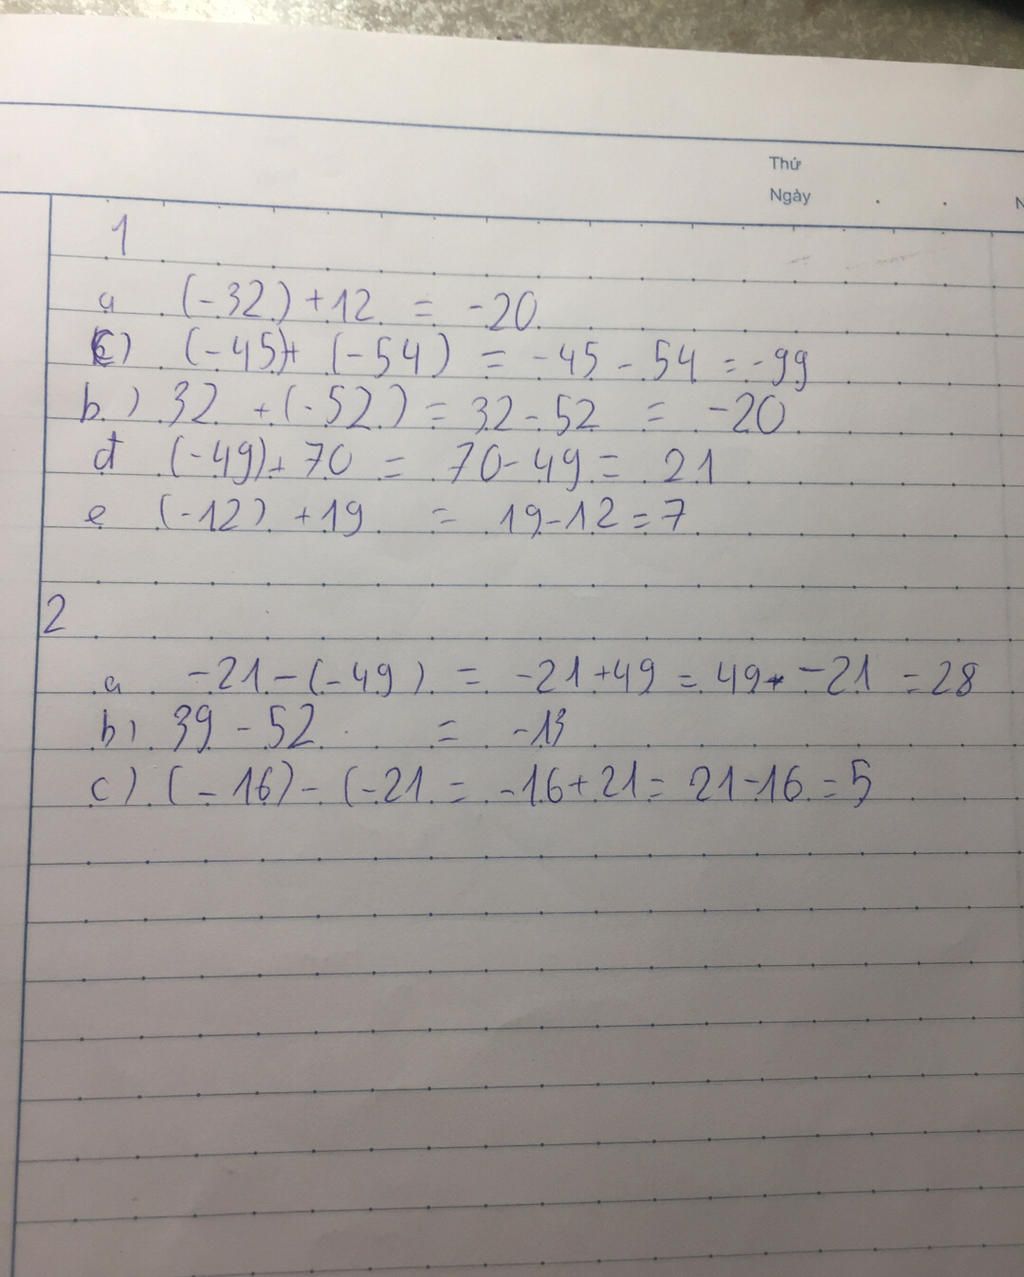 Thứ
Ngày
N
1
a (-32) + 12 = -20
c) (-45)+ (-54) = -45 - 54 = -99
b) 32 + (-52) = 32 - 52 = -20
đ (-49) + 70 = 70 - 49 = 21
e (-12) + 19 = 19 - 12 = 7
2
a -21 - (-49) = -21 + 49 = 49 - -21 = 28
b) 39 - 52 = -13
c) (-16) - (-21 = -16 + 21 = 21 - 16 = 5